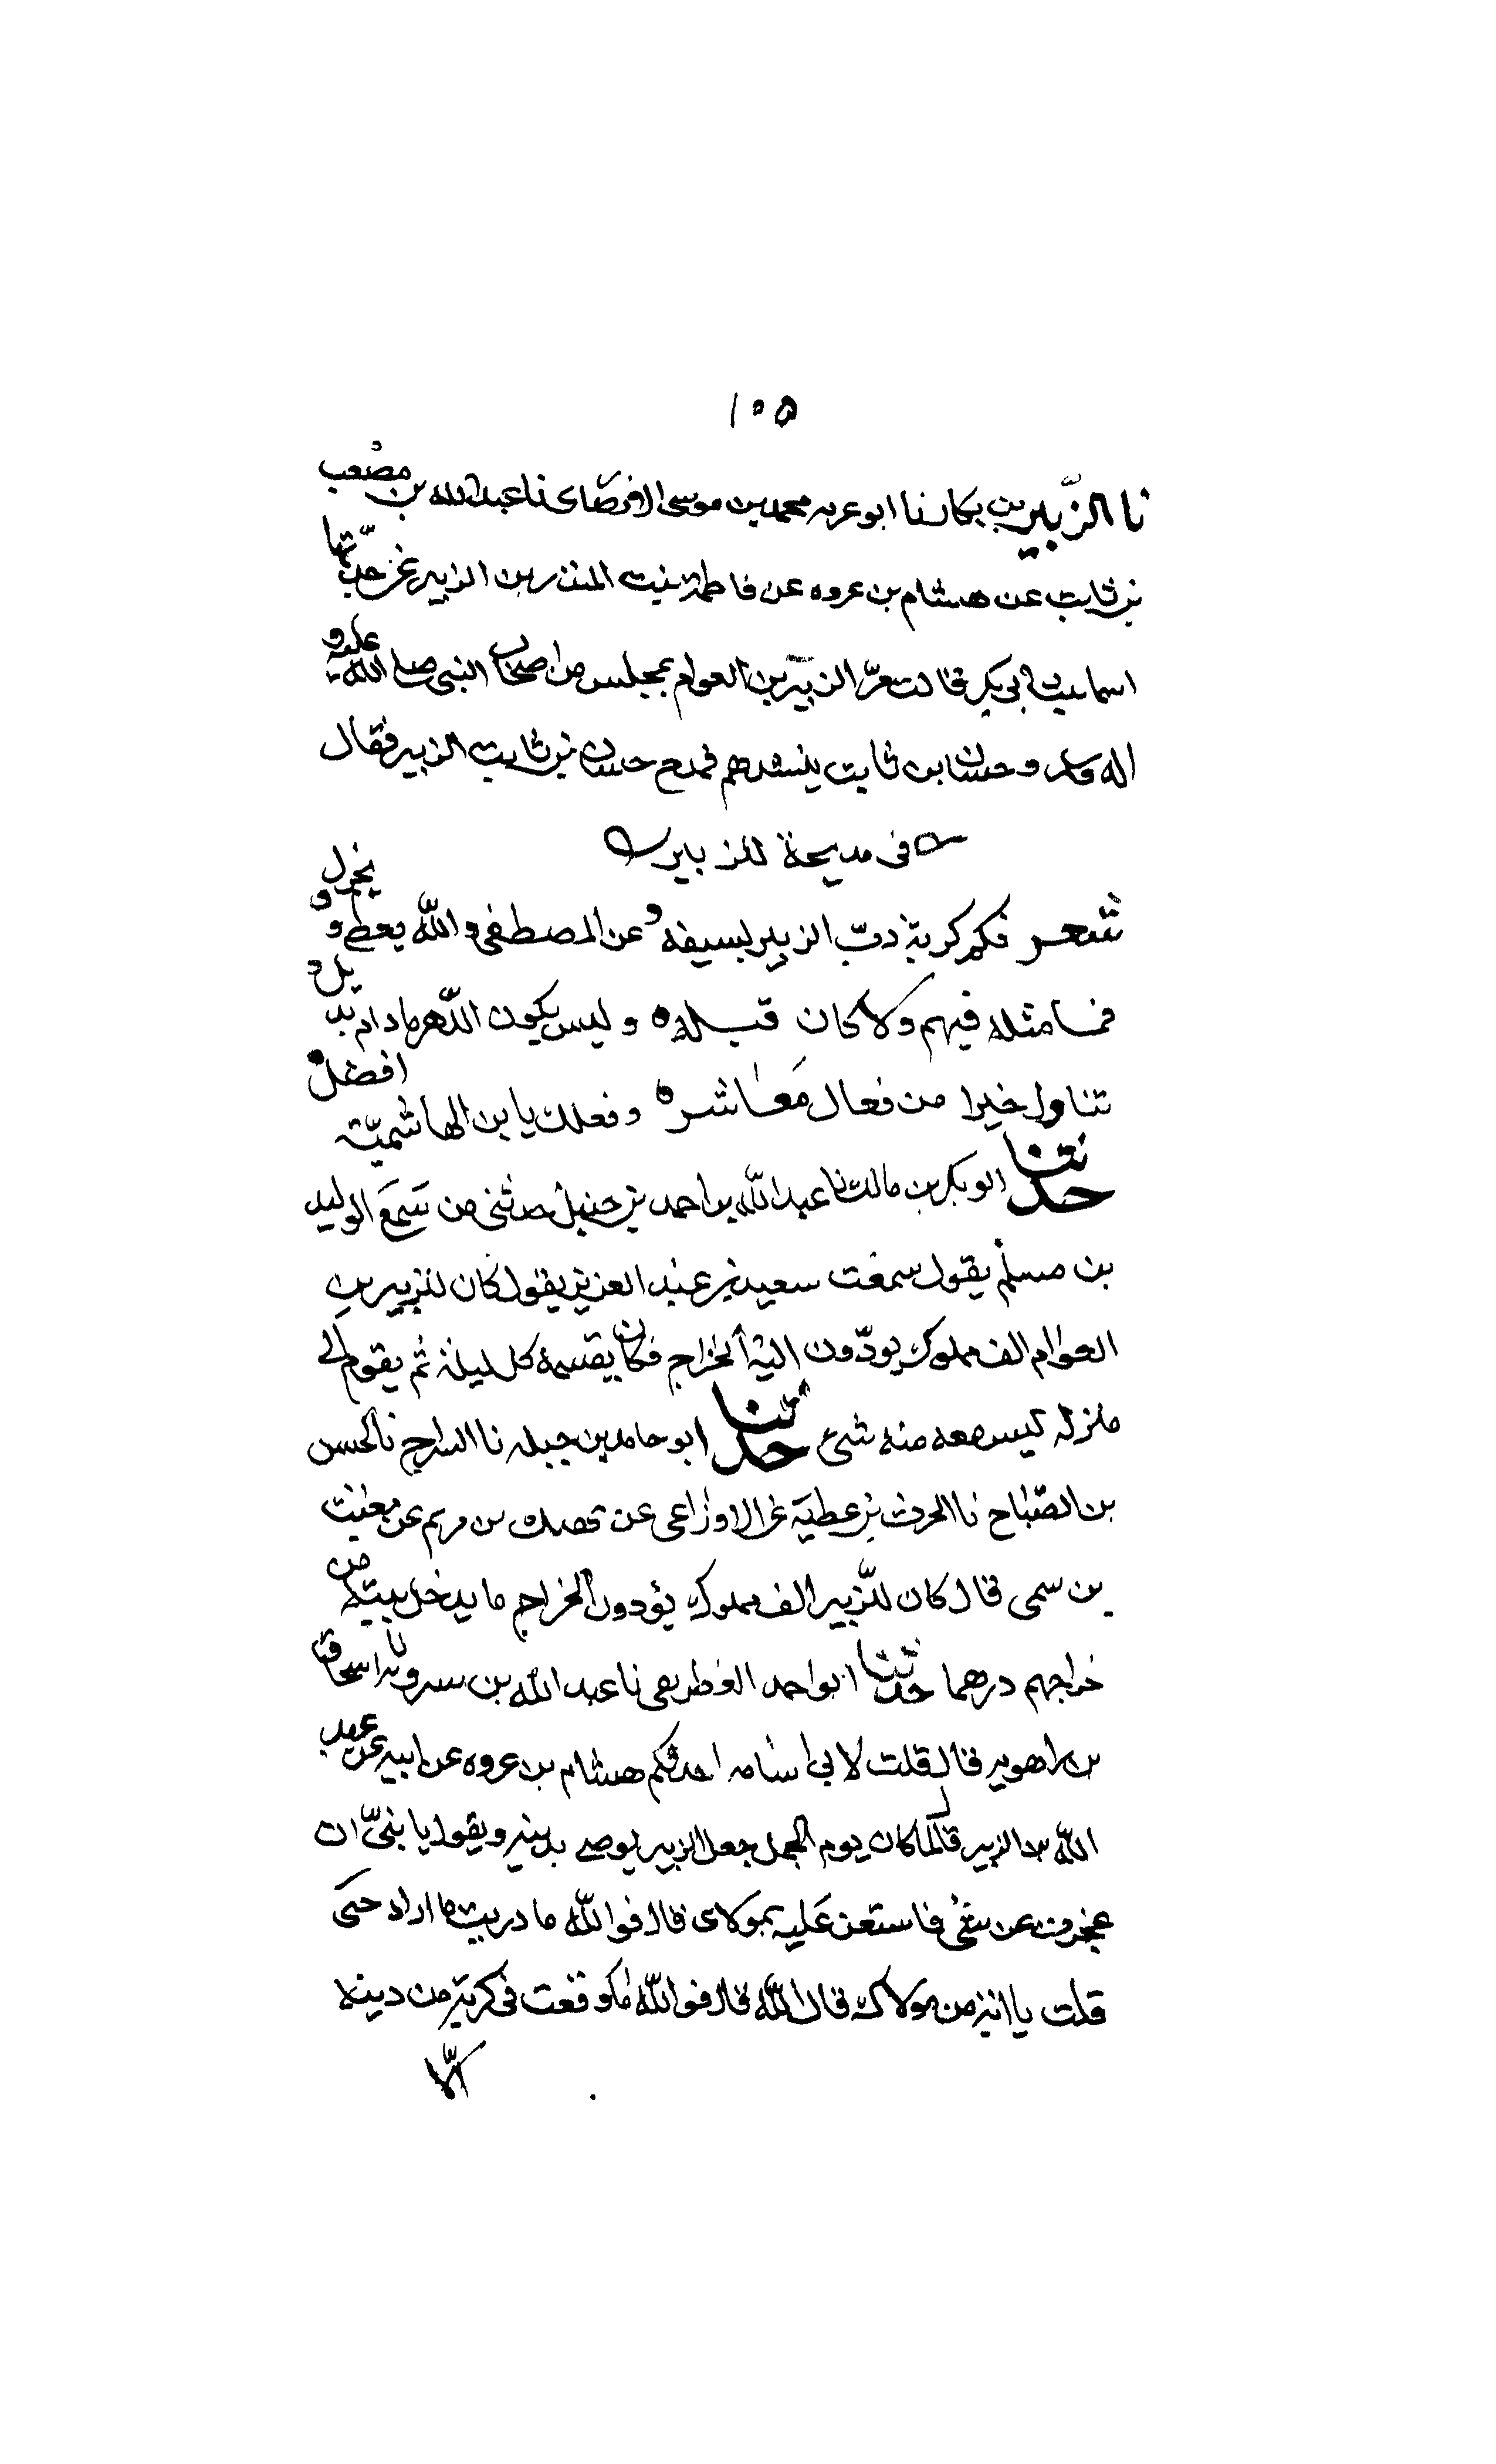 ١٠٥
نا الزبير بن بكار نا ابو غزيه محمد بن موسى الانصاى نا عبد الله بن مصعب
بن ثابت عن هشام بن عروه عن فاطمة بنت المنذر بن الزبير عن جدّتها
اسما بنت ابى بكر قالت مرّ الزبير بن العوام بمجلس من اصحاب النبى صلى الله عليه و
اله وسلم وحسان بن ثابت ينشدهم فمدح حسان بن ثابت الزبير فقال
فى مديحة للزبير
شعر فكم كربة ذبّ الزبير بسيفه عن المصطفى والله يعطى و يجزل
فما مثله فيهم ولا كان قبله وليس يكون الدّهر ما دام يذبل
ثناول خيرا من فعال مَعاشره وفعلك يا بن الهاشميّة افضل
حدثنا ابو بكر بن مالك نا عبد الله بن احمد بن حنبل حدثنى من سَمِعَ الوليد
بن مسلم يقول سمعت سعيد بن عبد العزيز يقول كان للزبير بن
العوام الف مملوك يودّون اليه الخراج فكان يقسمه كل ليلة ثم يقوم الى
منزله ليس معه منه شئ حدثنا ابو حامد بن جبله نا السراج نا الحسن
بن الصّباح نا الحرث بن عطية عن الاوزاعى عن نهيك بن مريم عن مغيث
بن سمى قال كان للزبير الف مملوك يؤدون الخراج ما يدخل بيته من
خراجهم درهما حدثنا ابو احمد الغطريفى نا عبد الله بن شيرويه نا اسحاق
بن راهويه قال قلت لابى اسامه احدثكم هشام بن عروه عن ابيه عن عبد
الله بن الزبير قال لما كان يوم الجمل جعل الزبير يوصى بدينه ويقول يا بنىّ ان
عجزت عن شئ فاستعن عَليه بمولاى قال فوالله ما دريت ما اراد حتى
قلت يا ابة من مولاك قال الله قال فوالله ما وقعت فى كربة من دينه
الّا